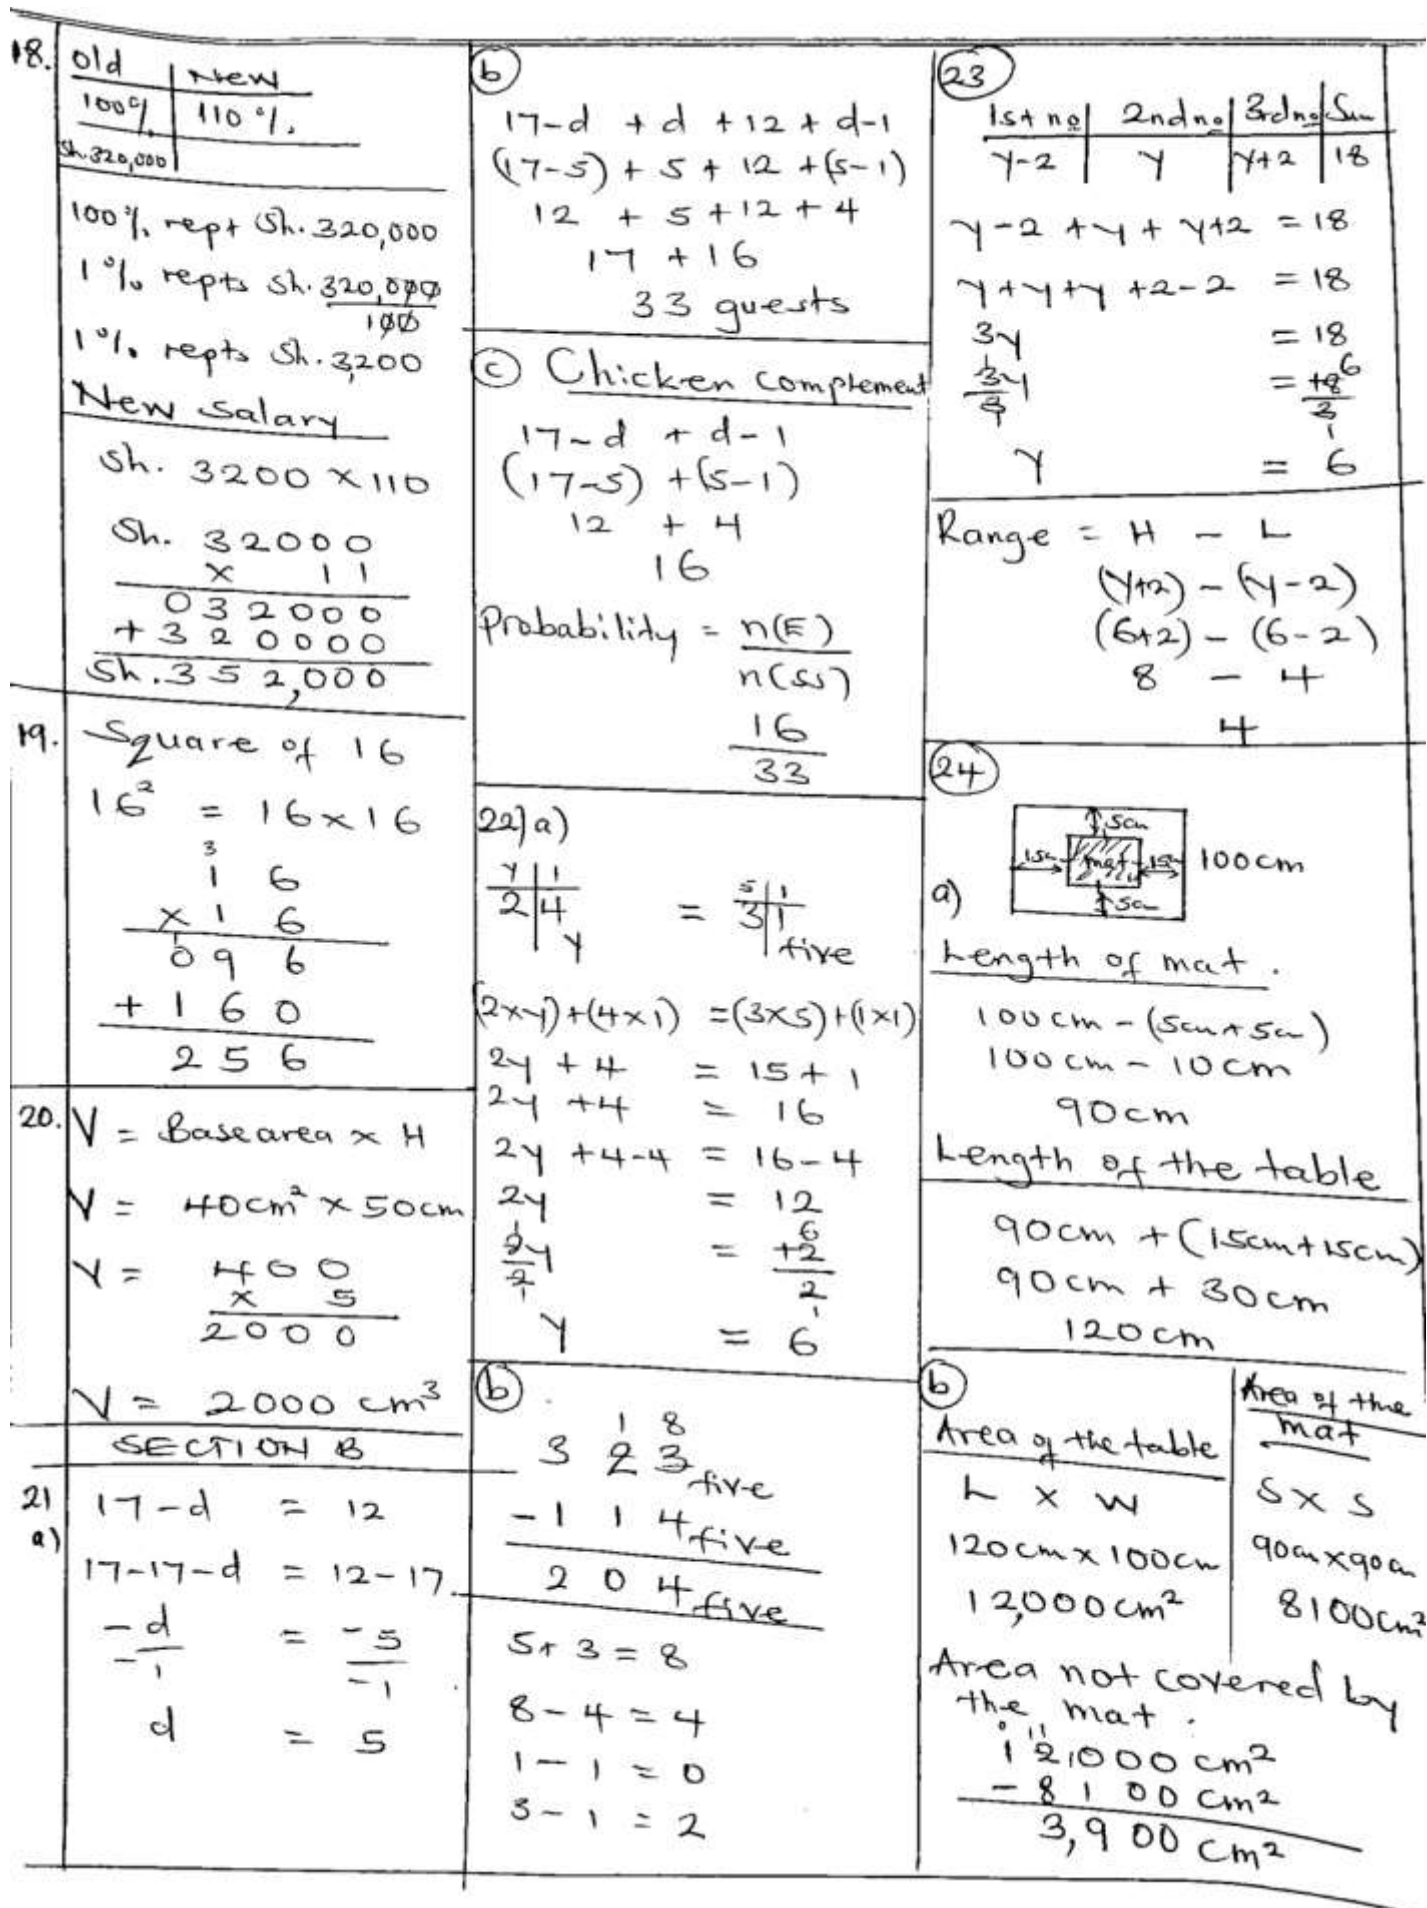 18.
old | New
100% | 110%.
Sh.320,000
100% rept Sh.320,000
1% repts Sh. 320,000
100
1%. repts Sh. 3,200
New Salary
Sh. 3200 × 110
Sh. 32000
× 11
032000
+320000
Sh.352,000
19. Square of 16
16² = 16×16
3
1 6
× 1 6
0 9 6
+ 1 6 0
2 5 6
20. V = Base area × H
V = 40cm² × 50cm
V = 400
× 5
2000
V = 2000 cm³
SECTION B
21
a)
17-d = 12
17-17-d = 12-17
-d = -5
-1 -1
d = 5
b
17-d + d + 12 + d-1
(17-5) + 5 + 12 + (5-1)
12 + 5 + 12 + 4
17 + 16
33 guests
c Chicken complement
17-d + d-1
(17-5) + (5-1)
12 + 4
16
Probability = n(E)
n(SS)
16
33
22) a)
y | 1 5 | 1
2 | 4 y = 3 | 1 five
(2×y)+(4×1) = (3×5)+(1×1)
2y + 4 = 15 + 1
2y + 4 = 16
2y + 4-4 = 16-4
2y = 12
1 6
2y = 12
2 2
1 1
y = 6
b
1 8
3 2 3 five
- 1 1 4 five
2 0 4 five
5+ 3 = 8
8 - 4 = 4
1 - 1 = 0
3 - 1 = 2
23
1st no | 2nd no | 3rd no | Sum
y-2 | y | y+2 | 18
y-2 + y + y+2 = 18
y+y+y +2-2 = 18
3y = 18
1 6
3y = 18
3 3
1
y = 6
Range = H - L
(y+2) - (y-2)
(6+2) - (6-2)
8 - 4
4
24
a)
5cm
15cm mat 15cm 100cm
5cm
Length of mat.
100cm - (5cm+5cm)
100cm - 10cm
90cm
Length of the table
90cm + (15cm+15cm)
90cm + 30cm
120cm
b
Area of the table
L × W
120cm × 100cm
12,000cm²
Area of the
mat
S × S
90cm×90cm
8100cm²
Area not covered by
the mat.
0 11
12,000 cm²
- 8 1 00 cm²
3,900 cm²